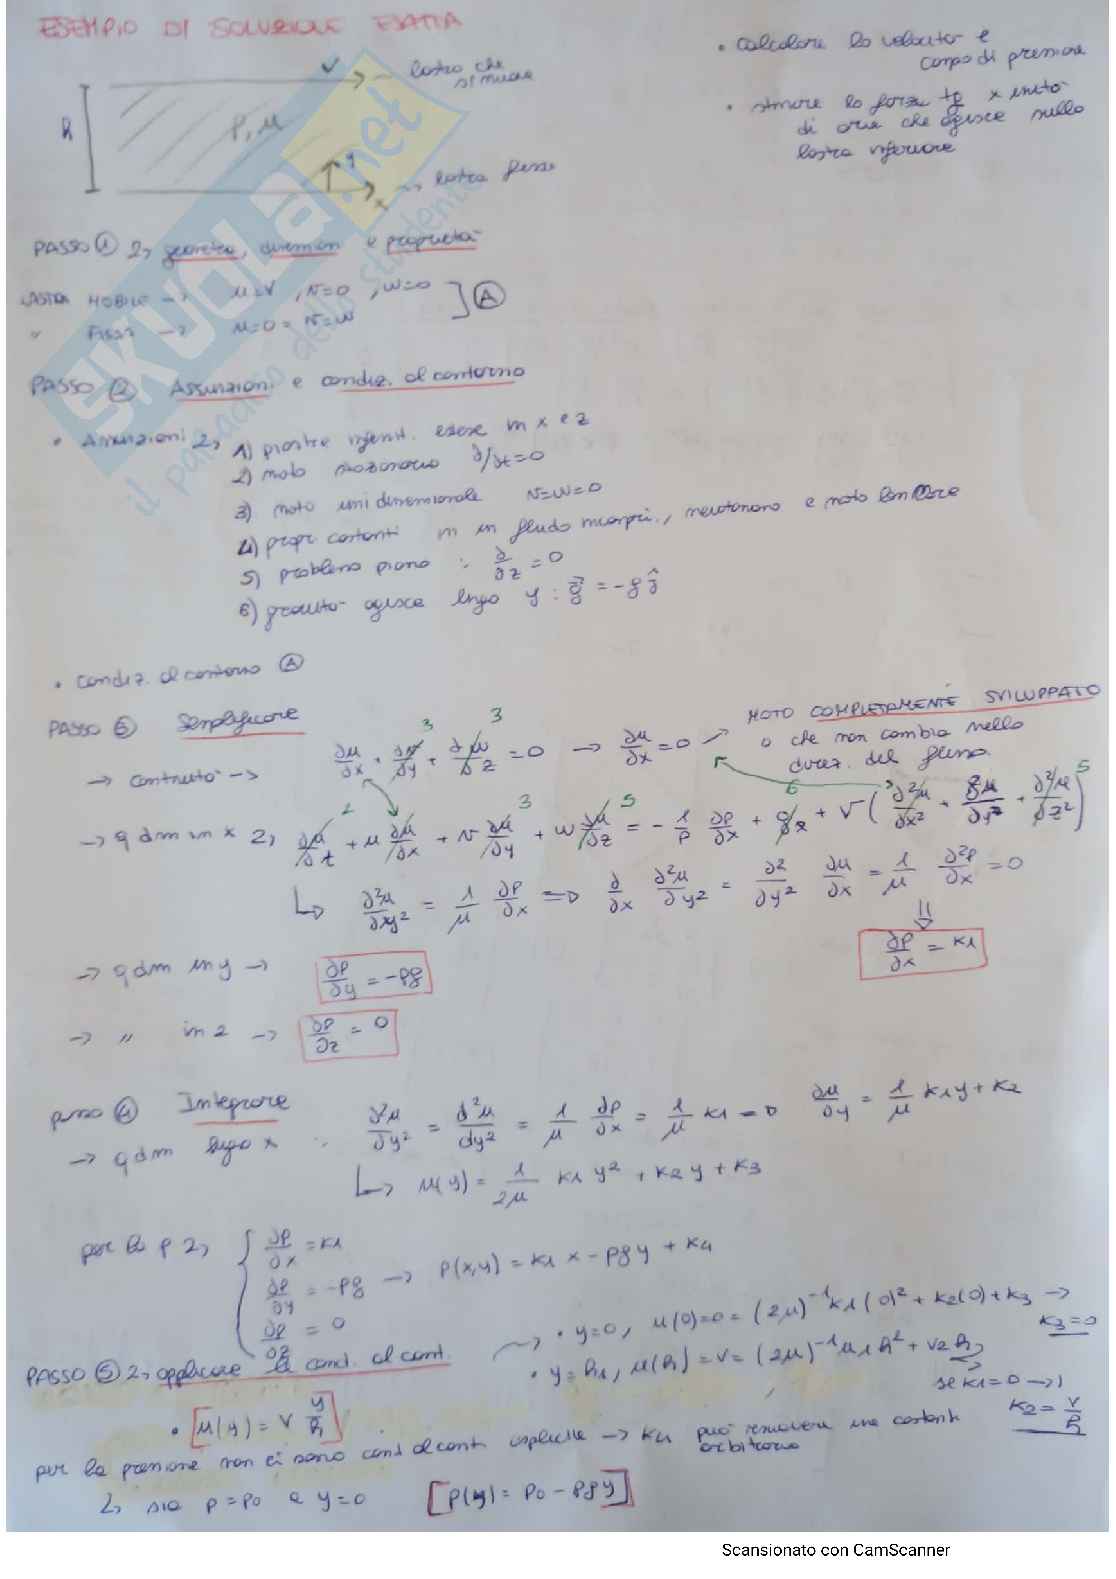 ESEMPIO DI SOLUZIONE ESATTA
• calcolare la velocità e
campo di pressione
• stimare la forza tg x unità
di area che agisce sulla
lastra inferiore
V → lastra che
si muove
h
ρ, μ
y
x
→ lastra fissa
PASSO ① ↳ geometria, dimensioni e proprietà
LASTRA MOBILE → u=V, v=0, w=0
" FISSA → u=0=v=w
Ⓐ
PASSO ② Assunzioni e condiz. al contorno
• Assunzioni ↳ 1) piastre infinit. estese in x e z
2) moto stazionario ∂/∂t=0
3) moto unidimensionale v=w=0
4) propr costanti in un fluido incompr., newtoniano e moto laminare
5) problema piano ∴ ∂/∂z = 0
6) gravità agisce lungo y : g⃗ = -g ĵ
• condiz. al contorno Ⓐ
PASSO ③ Semplificare
MOTO COMPLETAMENTE SVILUPPATO
o che non cambia nella
direz. del flusso
→ continuità → ∂u/∂x + ∂v/∂y + ∂w/∂z = 0 → ∂u/∂x = 0
3 3
→ qdm in x ↳ ∂u/∂t + u ∂u/∂x + v ∂u/∂y + w ∂u/∂z = - 1/ρ ∂p/∂x + gx + ν ( ∂²u/∂x² + ∂²u/∂y² + ∂²u/∂z² )
2 3 5 6 5
↳ ∂²u/∂y² = 1/μ ∂p/∂x => ∂/∂x ∂²u/∂y² = ∂²/∂y² ∂u/∂x = 1/μ ∂²p/∂x = 0
⇓
∂p/∂x = k1
→ qdm in y → ∂p/∂y = -ρg
→ " in z → ∂p/∂z = 0
passo ④ Integrare
→ qdm lungo x ∴ ∂²u/∂y² = d²u/dy² = 1/μ ∂p/∂x = 1/μ k1 => ∂u/∂y = 1/μ k1y + k2
↳ u(y) = 1/2μ k1 y² + k2 y + k3
per la p ↳ { ∂p/∂x = k1
∂p/∂y = -ρg → p(x,y) = k1 x - ρgy + k4
∂p/∂z = 0
PASSO ⑤ ↳ applicare le cond. al cont. → • y=0, u(0)=0 = (2μ)⁻¹ k1 (0)² + k2(0) + k3 → k3=0
• y=h, u(h) = V = (2μ)⁻¹ k1 h² + k2 h
se k1=0 →
k2 = V/h
• [u(y) = V y/h]
per la pressione non ci sono cond al cont. esplicite → k4 può rimanere una costante
arbitraria
↳ sia p=p0 a y=0 [p(y) = p0 - ρgy]
SKUOLA.net
il paradiso dello studente
Scansionato con CamScanner